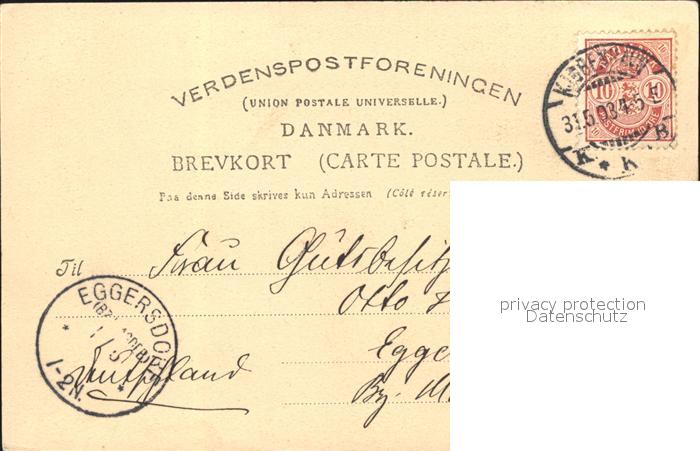 VERDENSPOSTFORENINGEN
(UNION POSTALE UNIVERSELLE.)
DANMARK.
BREVKORT (CARTE POSTALE.)
Paa denne Side skrives kun Adressen (Côté réser
10 10
KJØBENHAVN
31.5.03.4-5 E
K * K B
Til Frau Gutsbesitz
Otto
Egge
Bz. M
Deutschland
EGGERSDORF
1-2N.
privacy protection
Datenschutz